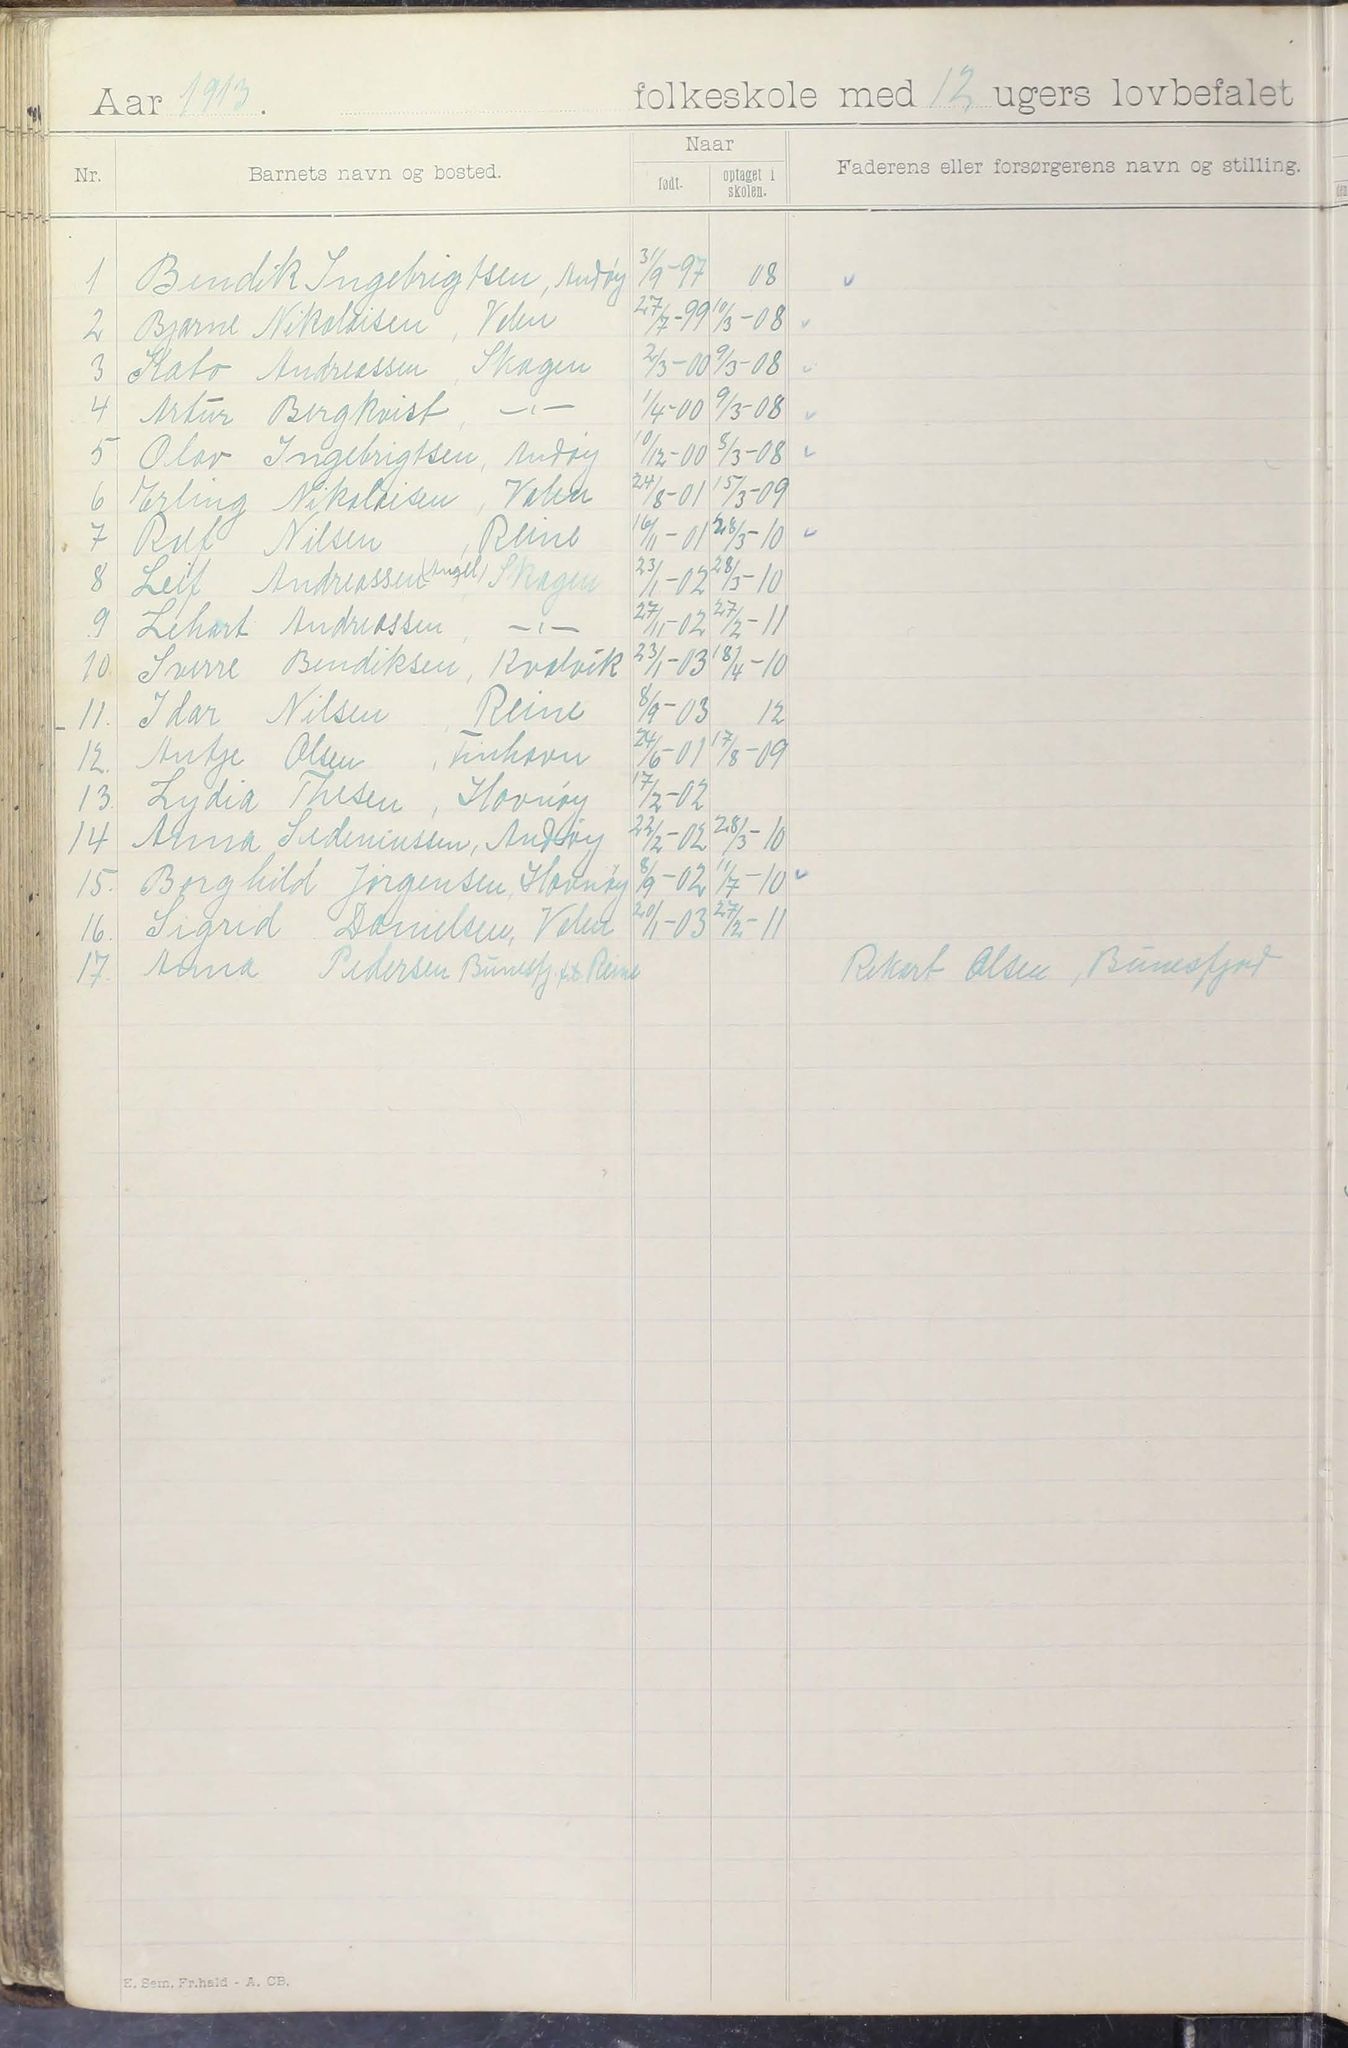 Aar 1913. folkeskole med 12 ugers lovbefalet
Nr. Barnets navn og bosted. Naar Faderens eller forsørgerens navn og stilling.
født. optaget i skolen.
1 Bendik Ingebrigtsen, Andøy 31/9-97 08
2 Bjarne Nikolaisen, Valen 27/7-99 10/3-08
3 Kato Andreassen, Skagen 2/3-00 9/3-08
4 Artur Bergkvist, -"- 1/4-00 9/3-08
5 Olav Ingebrigtsen, Andøy 10/12-00 8/3-08
6 Erling Nikolaisen, Valen 24/8-01 15/3-09
7 Rolf Nilsen, Reine 16/11-01 28/3-10
8 Leif Andreassen, Skagen 23/1-02 28/3-10
9 Lehart Andreassen, -"- 27/11-02 27/2-11
10. Sverre Bendiksen, Kvalvik 23/1-03 18/4-10
11. Idar Nilsen, Reine 8/9-03 12
12. Antje Olsen, Tinhavn 24/6-01 17/8-09
13. Lydia Thesen, Havnøy 17/2-02
14 Anna Sideniussen, Andøy 22/2-02 28/3-10
15. Borghild Jørgensen, Havnøy 8/9-02 11/7-10
16. Sigrid Danielsen, Valen 20/1-03 27/2-11
17. Anna Pedersen Bunesfj. Reine Rikart Olsen, Bunesfjord
E. Sem. Fr.hald - A. CB.